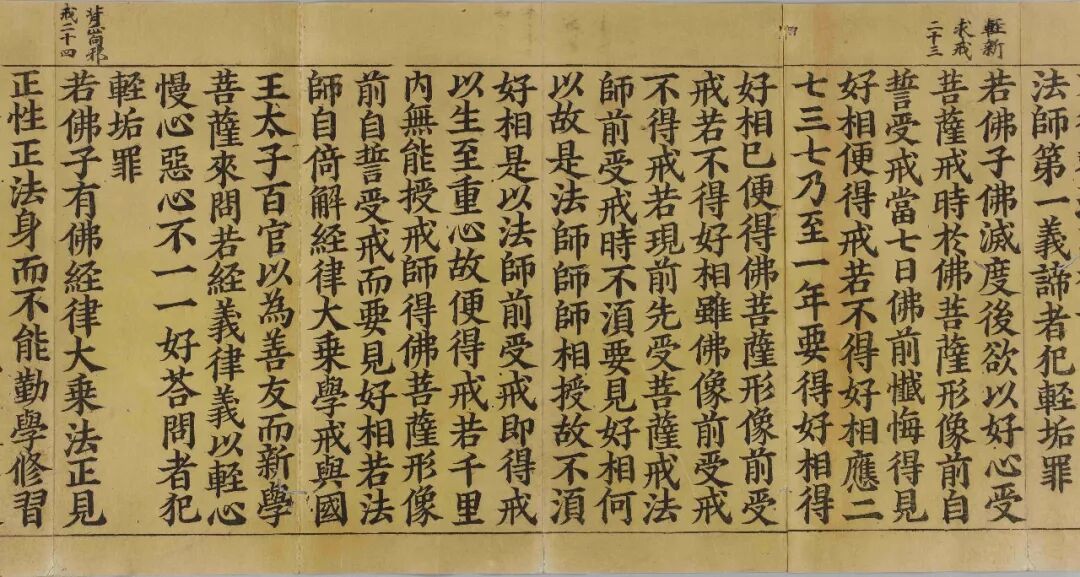 法師第一義諦者犯輕垢罪
輕新
求戒
二十三
若佛子佛滅度後欲以好心受
菩薩戒時於佛菩薩形像前自
誓受戒當七日佛前懺悔得見
好相便得戒若不得好相應二
七三七乃至一年要得好相得
好相已便得佛菩薩形像前受
戒若不得好相雖佛像前受戒
不得戒若現前先受菩薩戒法
師前受戒時不湏要見好相何
以故是法師師師相授故不湏
好相是以法師前受戒即得戒
以生至重心故便得戒若千里
内無能授戒師得佛菩薩形像
前自誓受戒而要見好相若法
師自倚解経律大乗學戒與國
王太子百官以為善友而新學
菩薩來問若経義律義以輕心
慢心惡心不一一好荅問者犯
輕垢罪
背正向邪
戒二十四
若佛子有佛経律大乗法正見
正性正法身而不能勤學修習